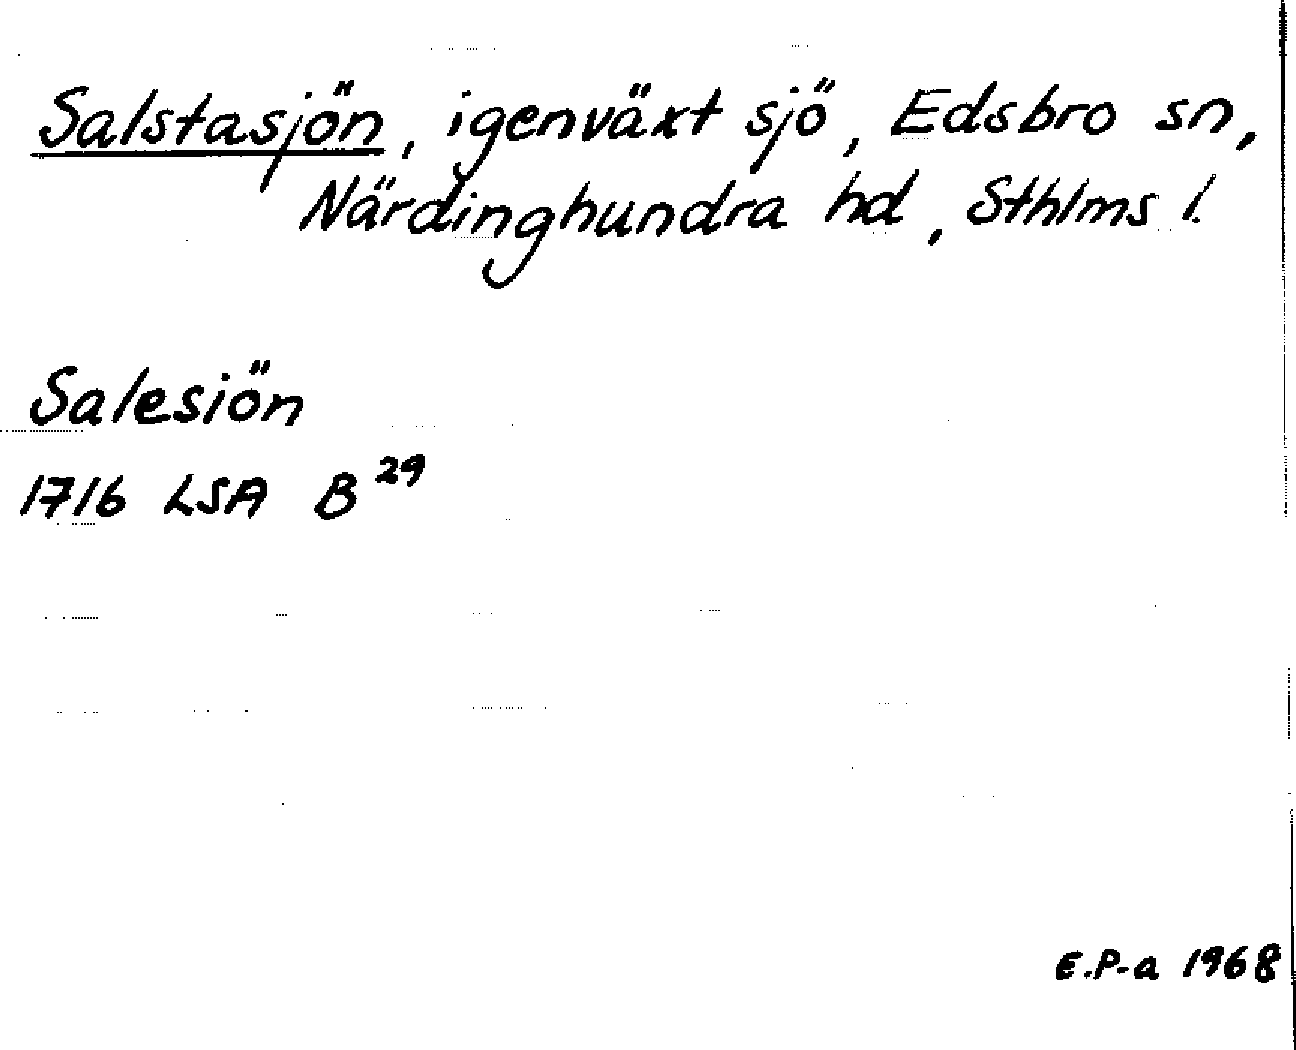 Salstasjön, igenväxt sjö, Edsbro sn,
Närdinghundra hd, Sthlms l.
Salesiön
1716 LSA B 29
E.P-a 1968